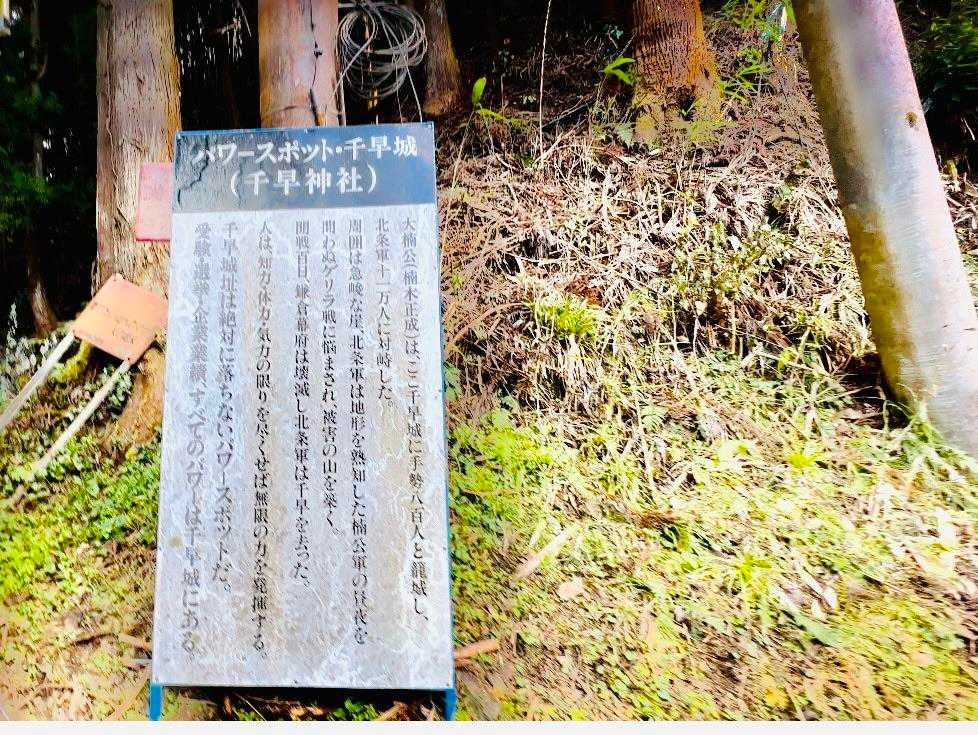 パワースポット・千早城
(千早神社)
大楠公(楠木正成)はここ千早城に手勢八百人と籠城し、
北条軍十一万人に対峙した。
周囲は急峻な崖、北条軍は地形を熟知した楠公軍の昼夜を
問わぬゲリラ戦に悩まされ、被害の山を築く。
開戦百日、鎌倉幕府は壊滅し北条軍は千早を去った。
人は、知力・体力・気力の限りを尽くせば無限の力を発揮する。
千早城址は絶対に落ちない、パワースポットだ。
受験、選挙、企業業績、すべてのパワーは千早城にある。